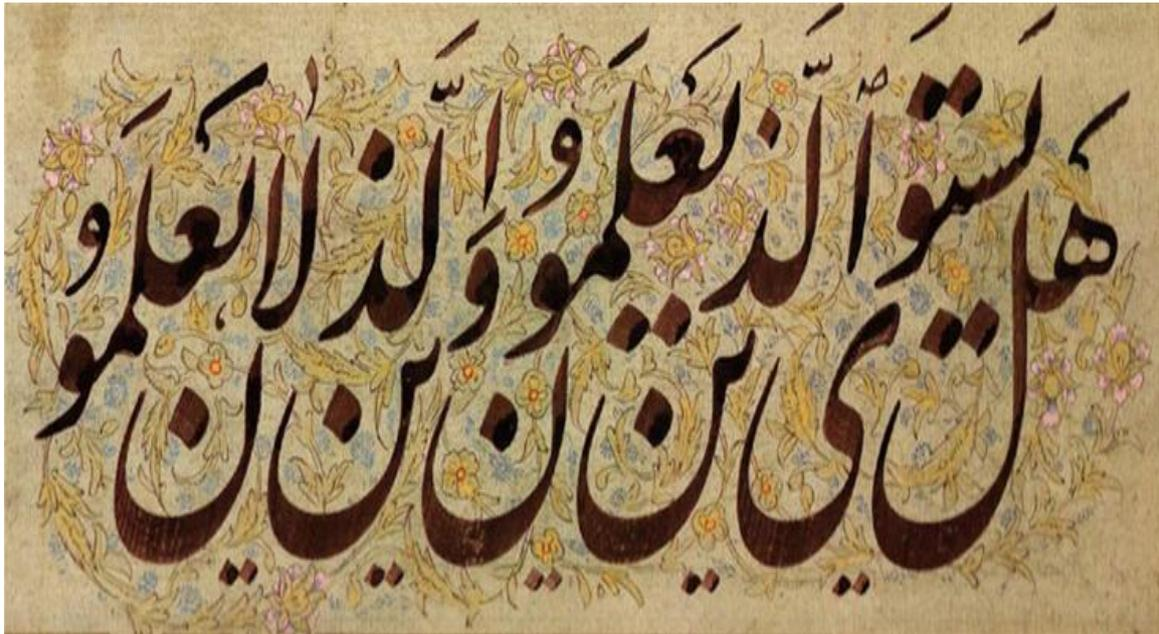 هَل يَستَوِي ٱلَّذِينَ يَعلَمُونَ وَالَّذِينَ لَا يَعلَمُونَ